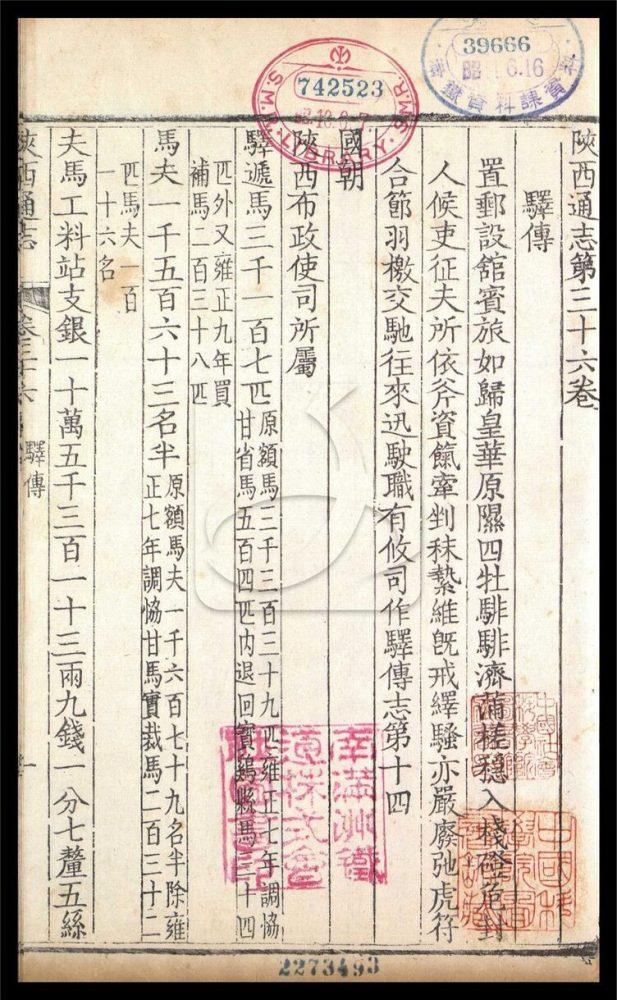 陝西通志第三十六卷
驛傳
置郵設舘賓旅如歸皇華原隰四牡騑騑濟蒲桂穏入棧磴危封
人候吏征夫所依斧資餼牽剉秣縶維旣戒繹騷亦嚴廢弛虎符
合節羽檄交馳往來迅駛職有攸司作驛傳志第十四
國朝
陝西布政使司所屬
驛遞馬三千一百七匹
原額馬三千三百三十九匹雍正七年調恊
甘省馬五百四匹内退回寳鷄縣馬三十四
匹外又雍正九年買
補馬二百三十八匹
馬夫一千五百六十三名半
原額馬夫一千六百七十九名半除雍
正七年調恊甘馬實裁馬二百三十二
匹馬夫一百
一十六名
夫馬工料站支銀一十萬五千三百一十三兩九錢一分七釐五絲
陝西通志
卷三十六
驛傳
一
S.M.R. LIBRARY
742523
39666
昭 6.16
満鐵資料課
南滿洲鐵
道株式會
社圖書印
中國科
學院圖
2273493